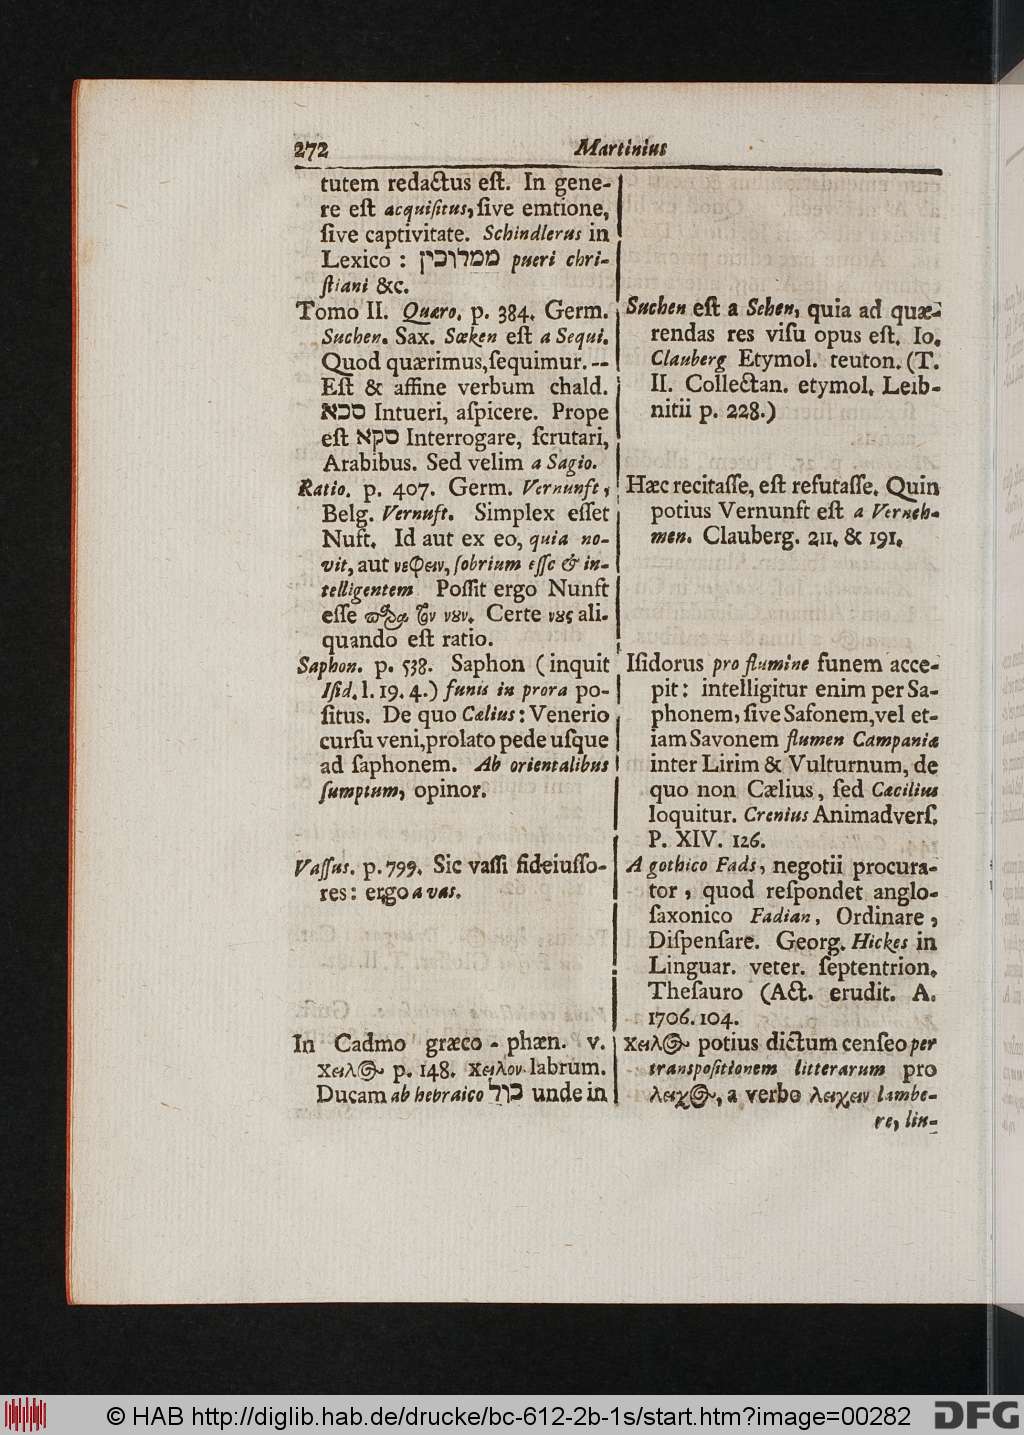 272 Martinius
tutem redactus eſt. In gene-
re eſt acquiſitus, ſive emtione,
ſive captivitate. Schindlerus in
Lexico : ממלוכין pueri chri-
ſtiani &c.
Tomo II. Quæro. p. 384. Germ.
Suchen. Sax. Sœken eſt a Sequi.
Quod quærimus, ſequimur. --
Eſt & affine verbum chald.
סכא Intueri, aſpicere. Prope
eſt סקא Interrogare, ſcrutari,
Arabibus. Sed velim a Sagio.
Ratio. p. 407. Germ. Vernunft,
Belg. Vernuft. Simplex eſſet
Nuft. Id aut ex eo, quia no-
vit, aut νεφειν, ſobrium eſſe & in-
telligentem Poſſit ergo Nunft
eſſe παρα τον νουν. Certe νους ali-
quando eſt ratio.
Saphon. p. 538. Saphon (inquit
Iſid. l. 19. 4.) funis in prora po-
ſitus. De quo Cælius: Venerio
curſu veni, prolato pede uſque
ad ſaphonem. Ab orientalibus
ſumptum, opinor.
Vaſſus. p. 799. Sic vaſſi fideiuſſo-
res: ergo a vas.
In Cadmo græco-phœn. v.
χειλος p. 148. χειλον labrum.
Ducam ab hebraico כול unde in
Suchen eſt a Sehen, quia ad quæ-
rendas res viſu opus eſt. Io.
Clauberg Etymol. teuton. (T.
II. Collectan. etymol. Leib-
nitii p. 228.)
Hæc recitaſſe, eſt refutaſſe. Quin
potius Vernunft eſt a Verneh-
men. Clauberg. 211. & 191.
Iſidorus pro flumine funem acce-
pit: intelligitur enim per Sa-
phonem, ſive Safonem, vel et-
iam Savonem flumen Campaniæ
inter Lirim & Vulturnum, de
quo non Cælius, ſed Cæcilius
loquitur. Crenius Animadverſ.
P. XIV. 126.
A gothico Fads, negotii procura-
tor, quod reſpondet anglo-
ſaxonico Fadian, Ordinare,
Diſpenſare. Georg. Hickes in
Linguar. veter. ſeptentrion.
Theſauro (Act. erudit. A.
1706. 104.
χειλος potius dictum cenſeo per
transpoſitionem litterarum pro
λειχος, a verbo λειχειν lambe-
re, lin-
© HAB http://diglib.hab.de/drucke/bc-612-2b-1s/start.htm?image=00282 DFG